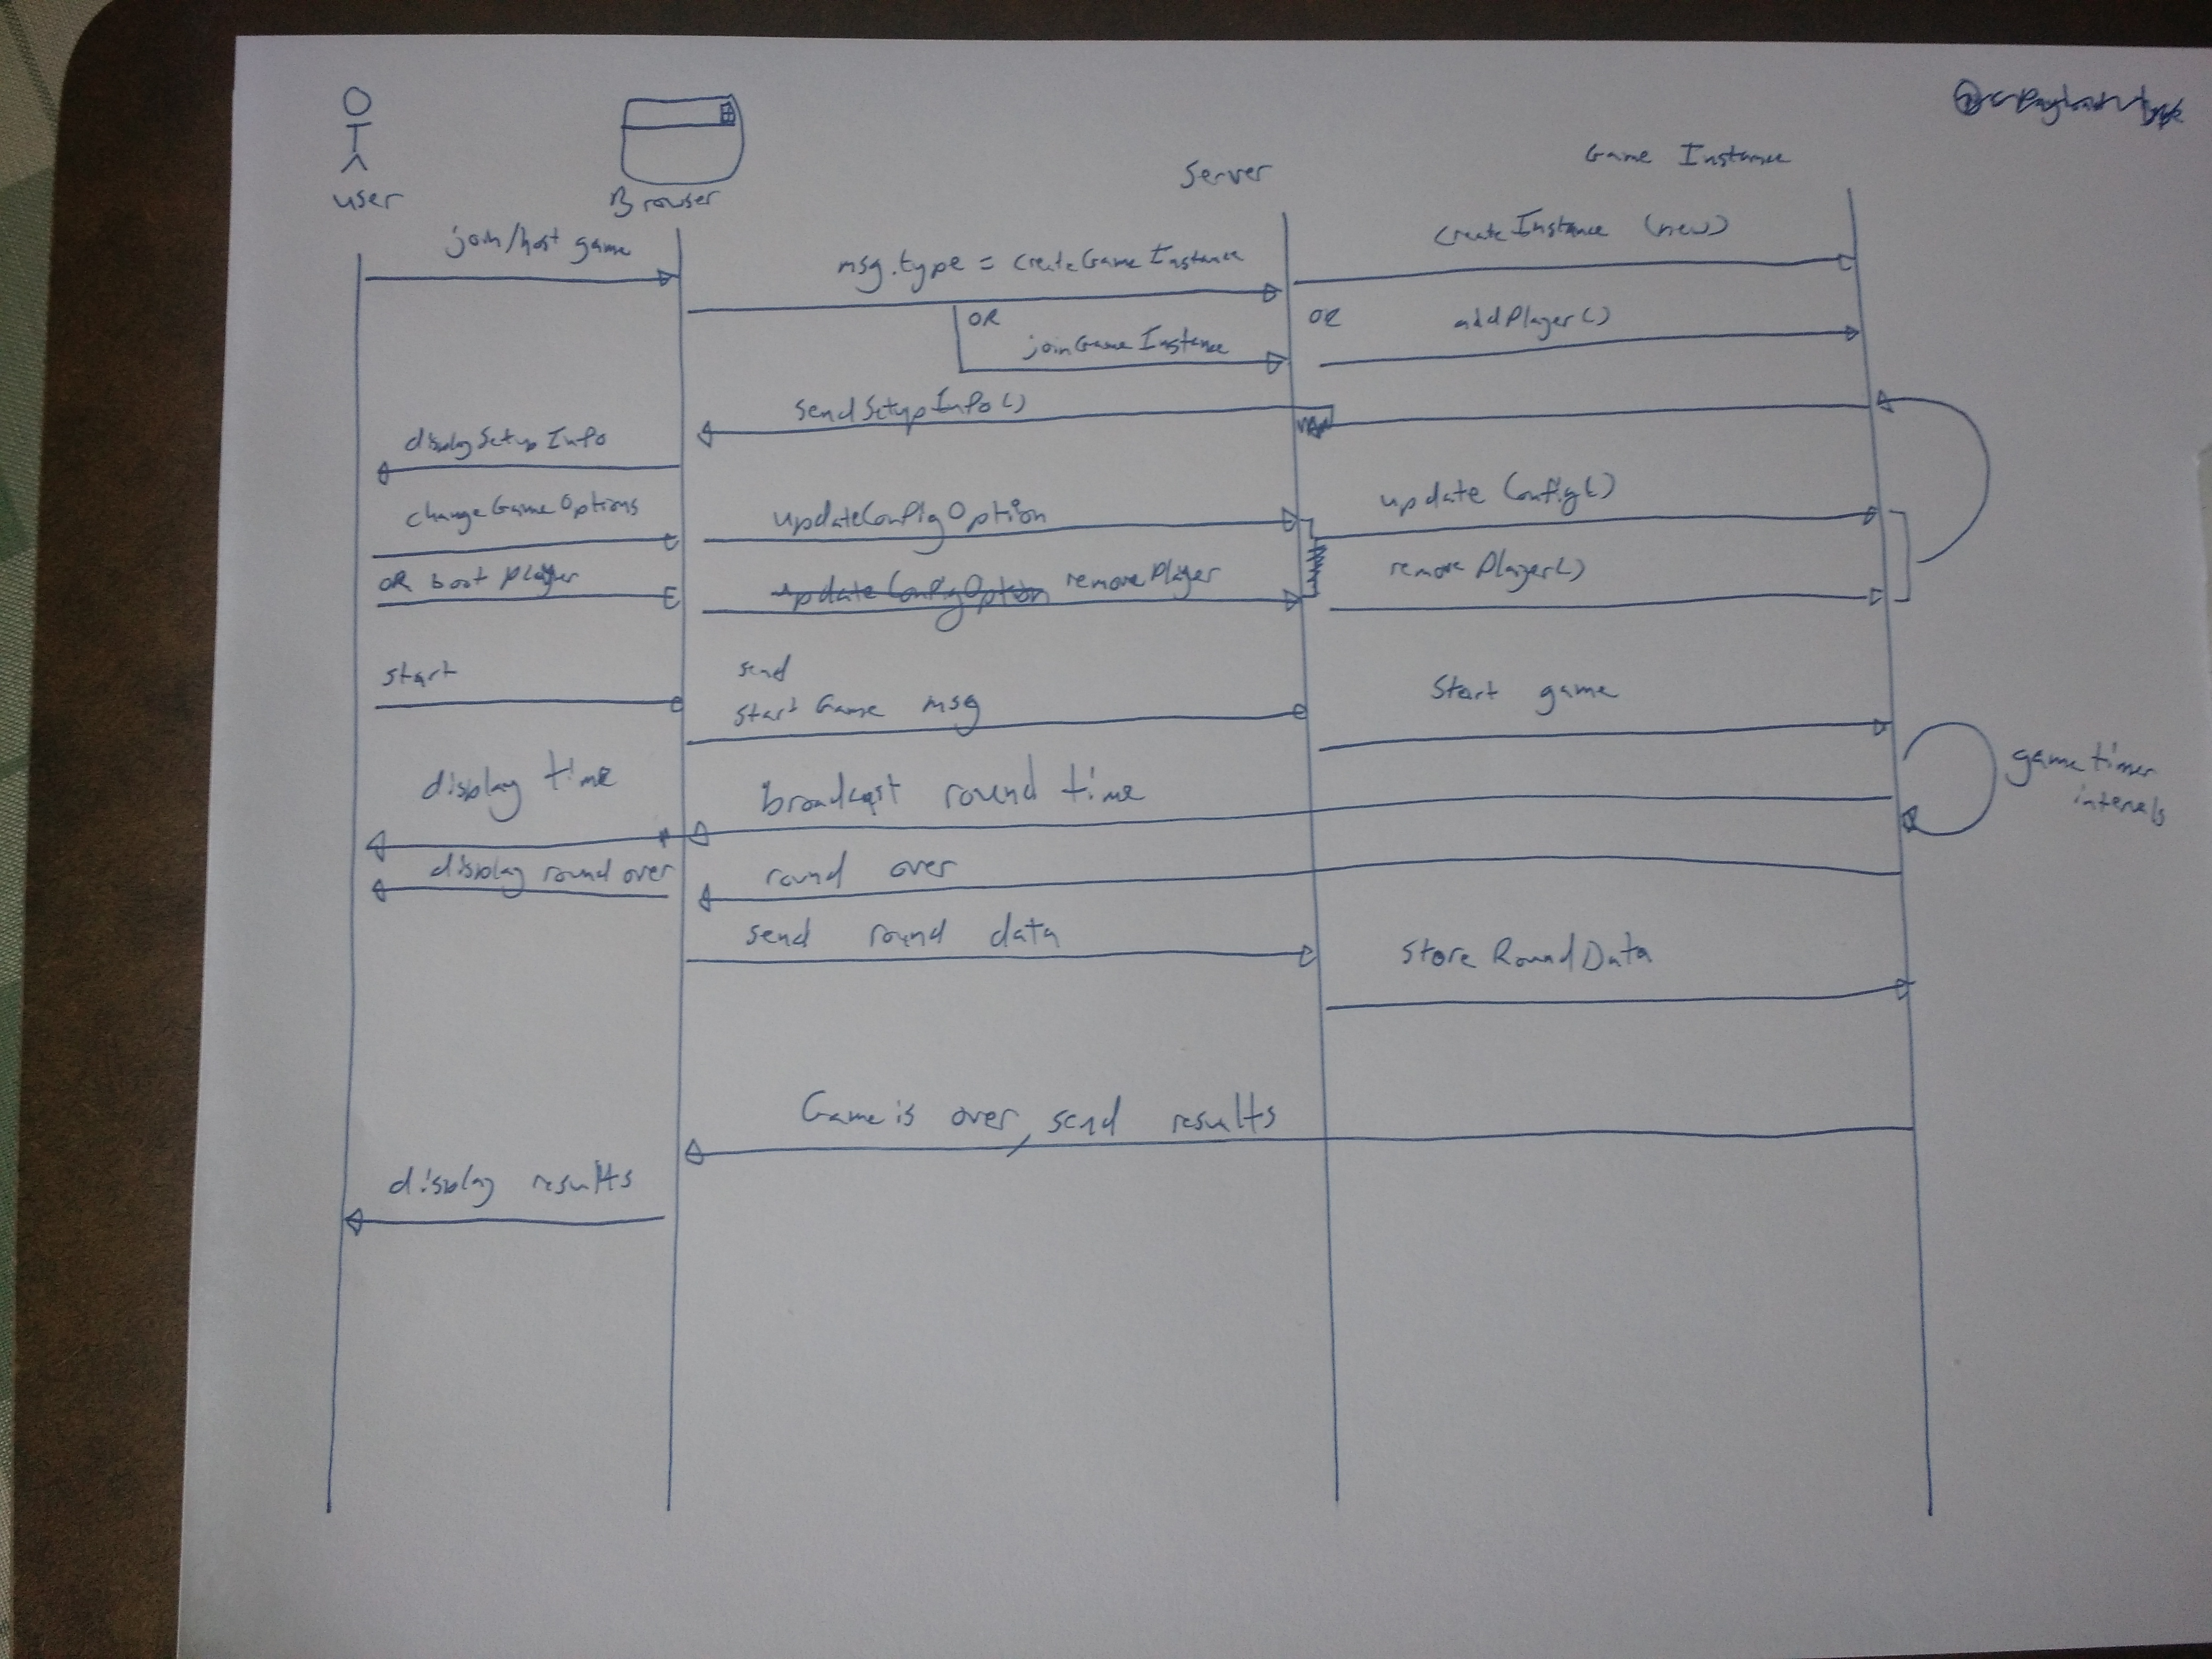 user
Browser
Server
Game Instance
join/host game
msg.type = createGameInstance
createInstance (new)
OR
joinGameInstance
OR
addPlayer()
sendSetupInfo()
displaySetupInfo
changeGameOptions
updateConfigOption
updateConfig()
OR boot player
updateConfigOption removePlayer
removePlayer()
start
send
startGame msg
Start game
game timer
intervals
display time
broadcast round time
display round over
round over
send round data
Store RoundData
Game is over, send results
display results